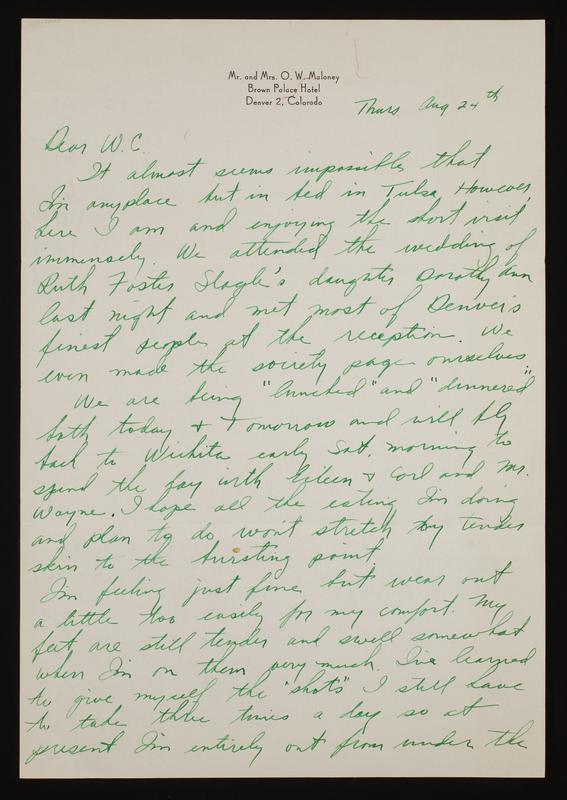 Mr. and Mrs. O. W. Maloney
Brown Palace Hotel
Denver 2, Colorado
Thurs. Aug 24th
Dear W.C.
It almost seems impossible that
I'm anyplace but in bed in Tulsa. However,
here I am and enjoying the short visit
immensely. We attended the wedding of
Ruth Foster Slagle's daughter Dorothy Ann
last night and met most of Denver's
finest people at the reception. We
even made the society page ourselves
We are being "lunched" and "dinnered"
both today & tomorrow and will fly
back to Wichita early Sat. morning to
spend the day with Eileen & Carl and Mr.
Wayne. I hope all the eating I'm doing
and plan to do won't stretch my tender
skin to the bursting point.
I'm feeling just fine but wear out
a little too easily for my comfort. My
feet are still tender and swell somewhat
when I'm on them very much. I've learned
to give myself the "shots" I still have
to take three times a day so at
present I'm entirely out from under the